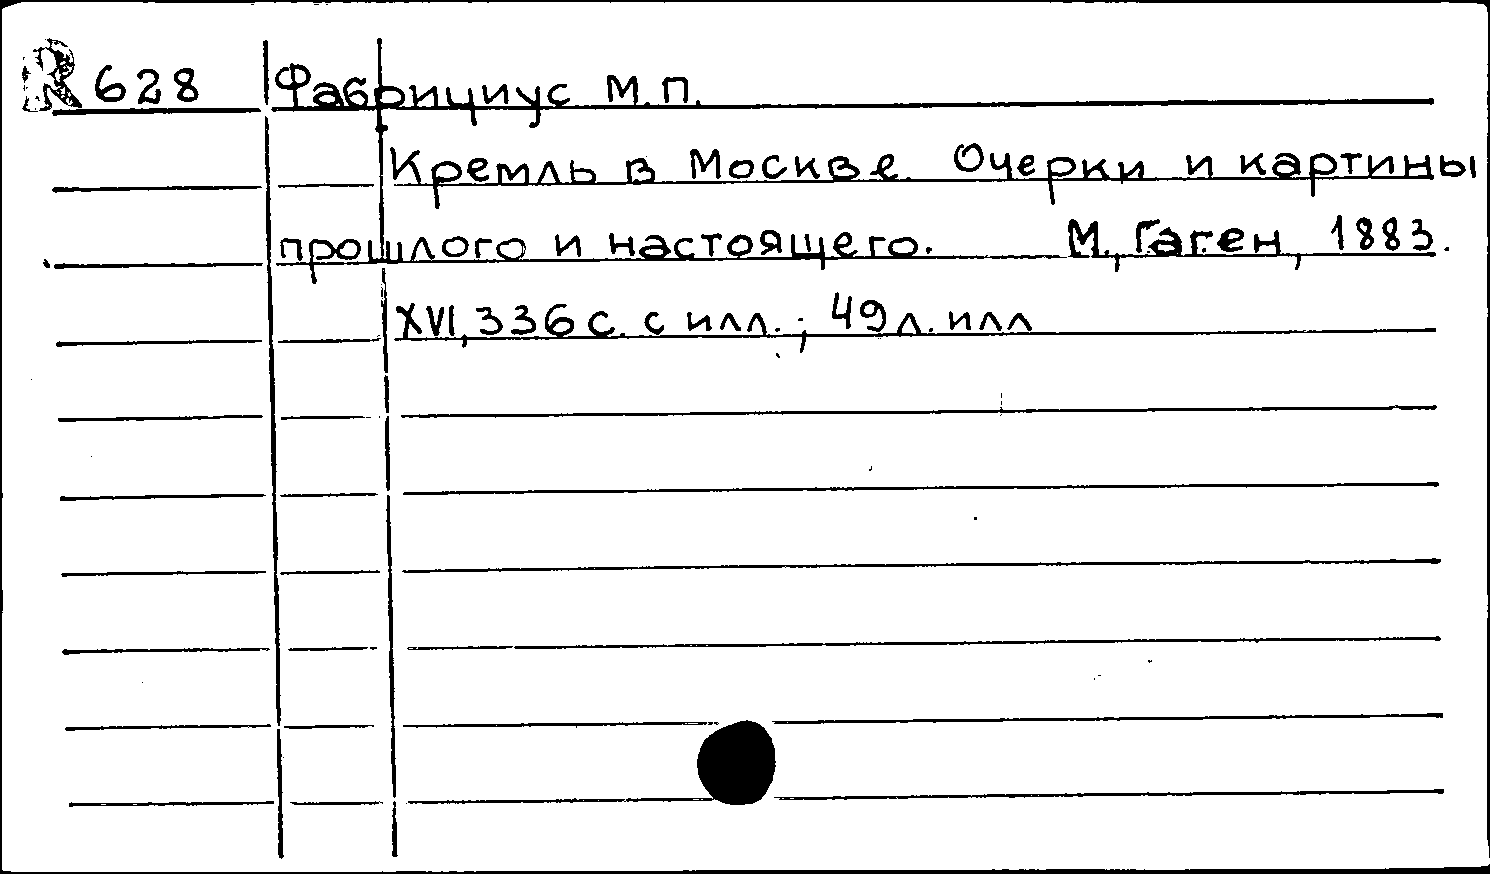 R 628 Фабрициус М.П.
Кремль в Москве. Очерки и картины
прошлого и настоящего. М., Гаген, 1883.
XVI, 336 с. с илл.; 49 л. илл